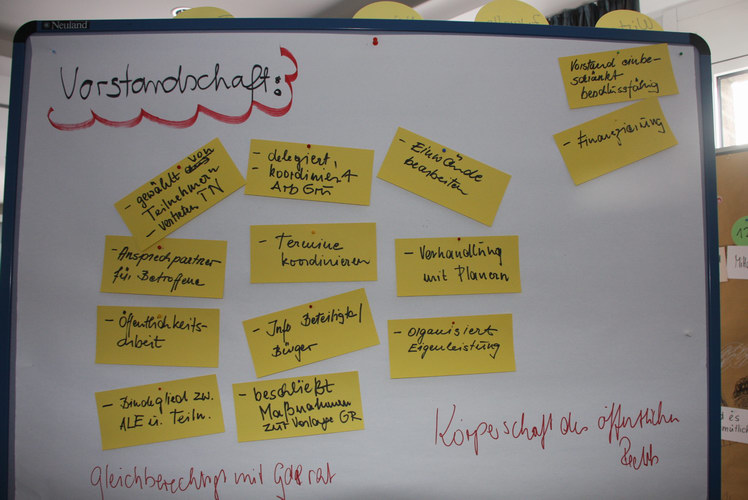 Neuland
Vorstandschaft:
Vorstand einbe-
schränkt
beschlussfähig
- Finanzierung
- gewählt von
Teilnehmern
- vertreten TN
- delegiert,
- koordiniert
Arb Gru
- Einwände
bearbeiten
- Ansprechpartner
für Betroffene
- Termine
koordinieren
- Verhandlung
mit Planern
- Öffentlichkeits-
arbeit
- Info Beteiligte/
Bürger
- organisiert
Eigenleistung
- Bindeglied zw.
ALE u. Teiln.
- beschließt
Maßnahmen
zur Vorlage GR
Körperschaft des öffentlichen
Rechts
gleichberechtigt mit